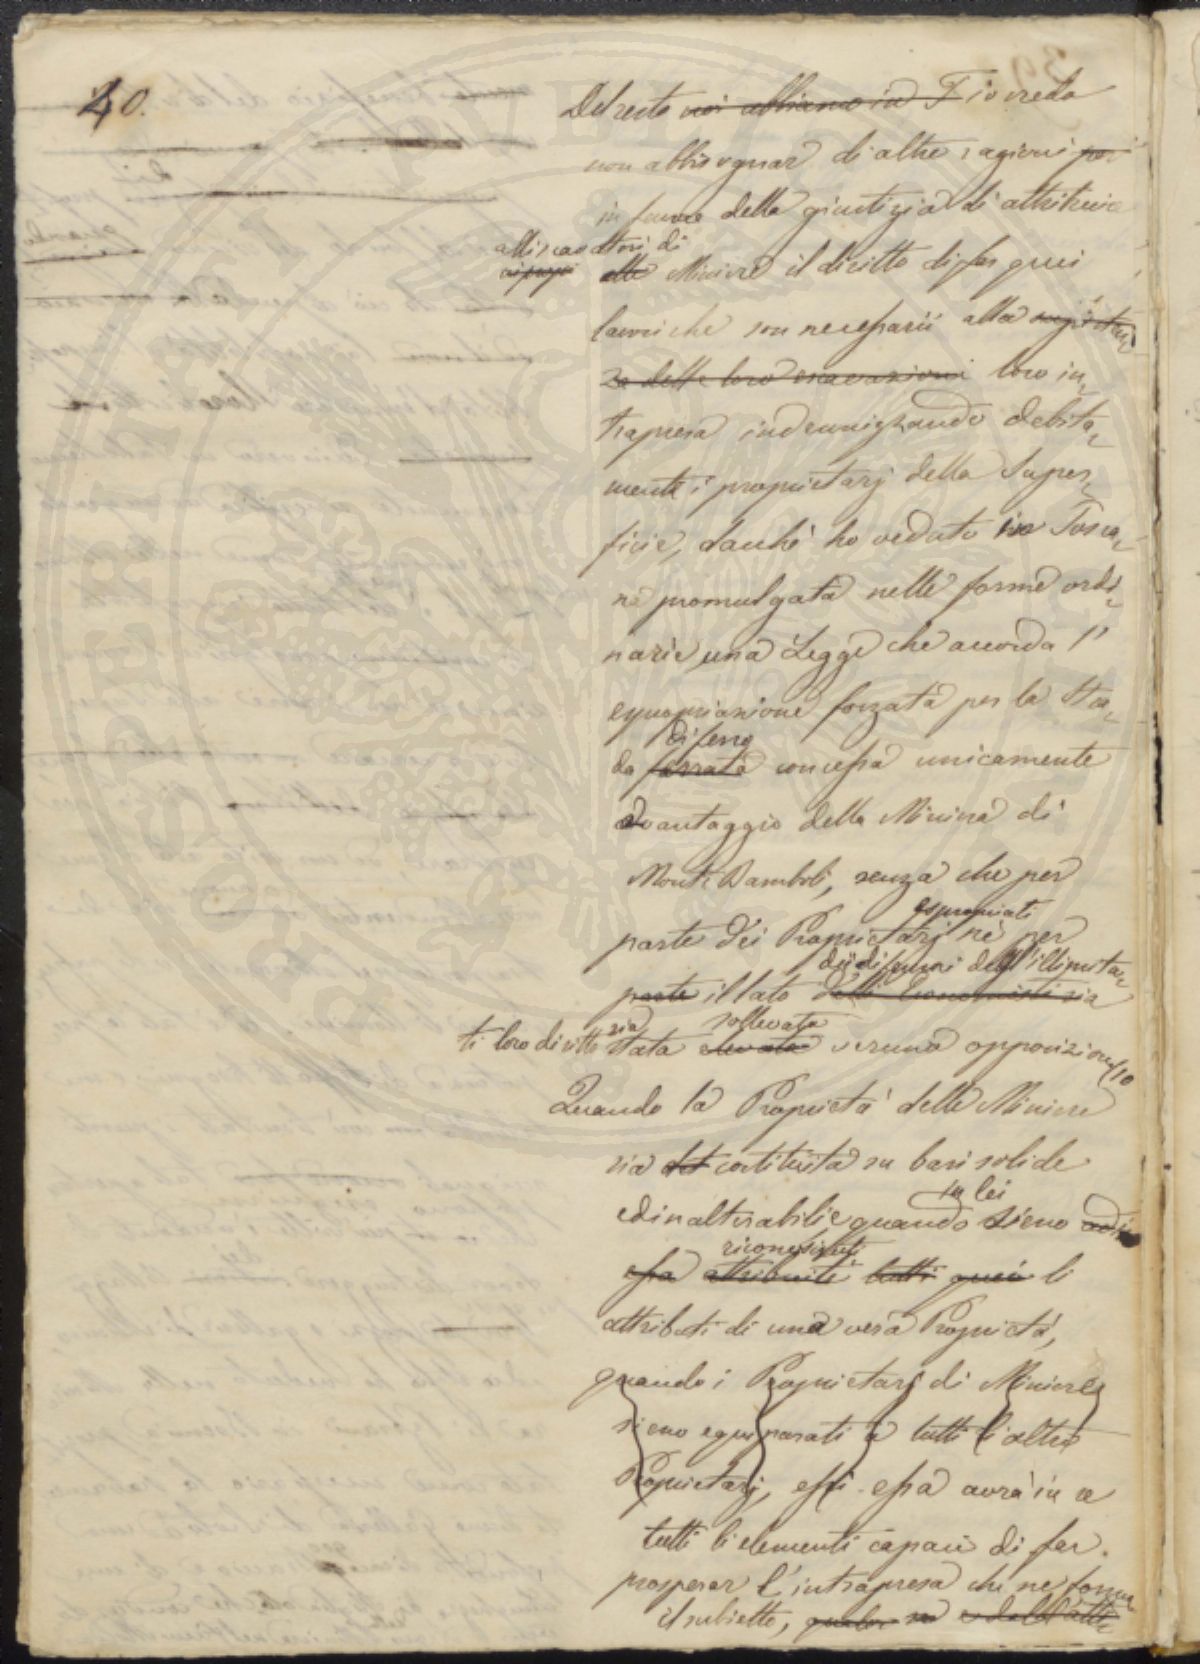 40.
Del resto noi abbiamo in T io credo
non abbisognar di altre ragioni per
in favore della giustizia di attribuire
alli scavatori di
ai propri alle Miniere il diritto di far quei
lavori che son necessarii alla
za delle loro escavazioni loro in„
trapresa indennizzando debita„
mente i proprietarj della Super„
ficie, dacchè ho veduto in Tosca„
na promulgata nelle forme ordi„
narie una Legge che accorda l'
espropriazione forzata per la Stra„
di ferro
da ferrata concessa unicamente
a vantaggio della Miniera di
Monte Bamboli, senza che per
espropriati
parte dei Proprietarj nè per
dei difensori dell'illimita„
parte il lato delli Economisti sia
sia sollevata
ti loro diritto stata elevata veruna opposizione/10
Quando la Proprietà delle Miniere
sia costituita su basi solide
in lei
ed inalterabili, e quando sieno ad
riconosciuti
essa attribuiti tutti quei li
attributi di una vera Proprietà,
quando i Proprietarj di Miniere
sieno equiparati a tutti li altri
Proprietarj, essi essa avrà in se
tutti li elementi capaci di far
prosperar l'intrapresa che ne forma
il subietto, qualor e dall'altr